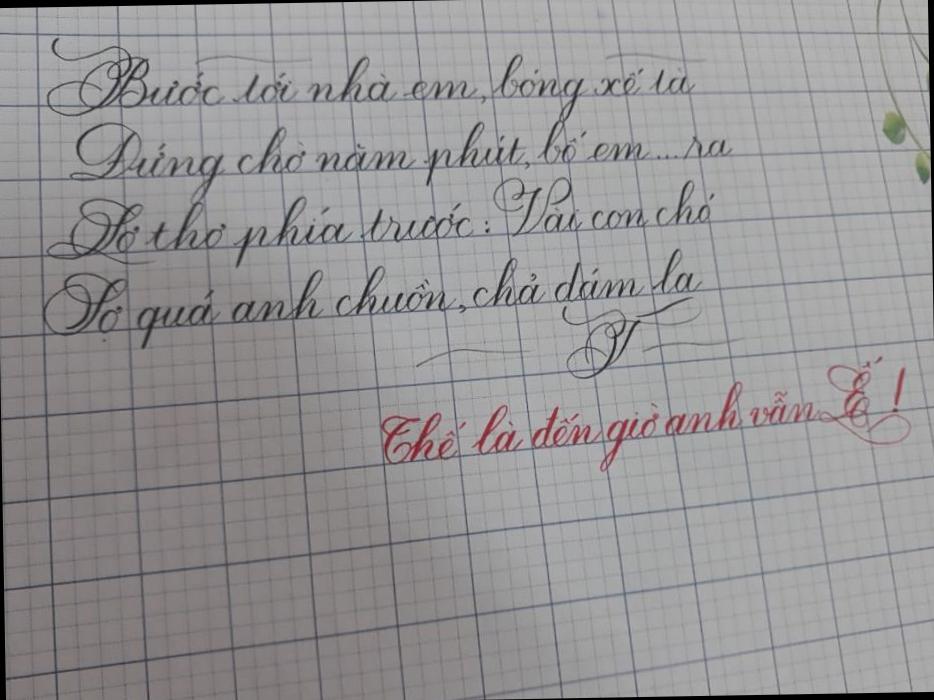 Bước tới nhà em, bóng xế tà
Đứng chờ năm phút, bố em... ra
Lơ thơ phía trước: Vài con chó
Sợ quá anh chuồn, chả dám la
Thế là đến giờ anh vẫn Ế!